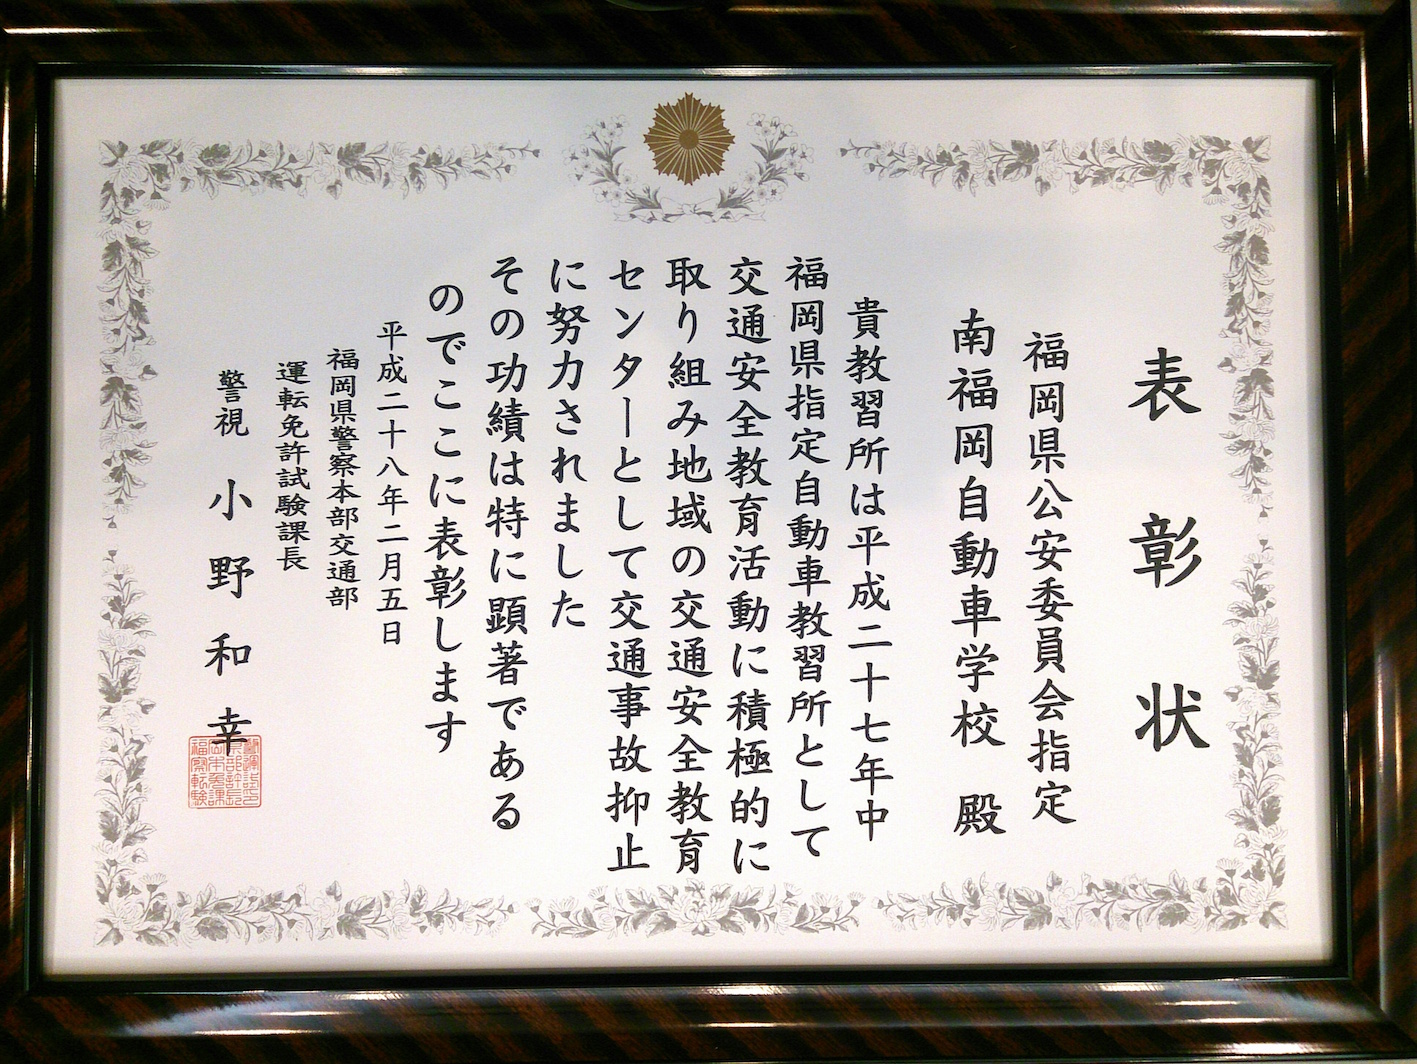 表彰状
福岡県公安委員会指定
南福岡自動車学校 殿
貴教習所は平成二十七年中
福岡県指定自動車教習所として
交通安全教育活動に積極的に
取り組み地域の交通安全教育
センターとして交通事故抑止
に努力されました
その功績は特に顕著である
のでここに表彰します
平成二十八年二月五日
福岡県警察本部交通部
運転免許試験課長
警視 小野和幸